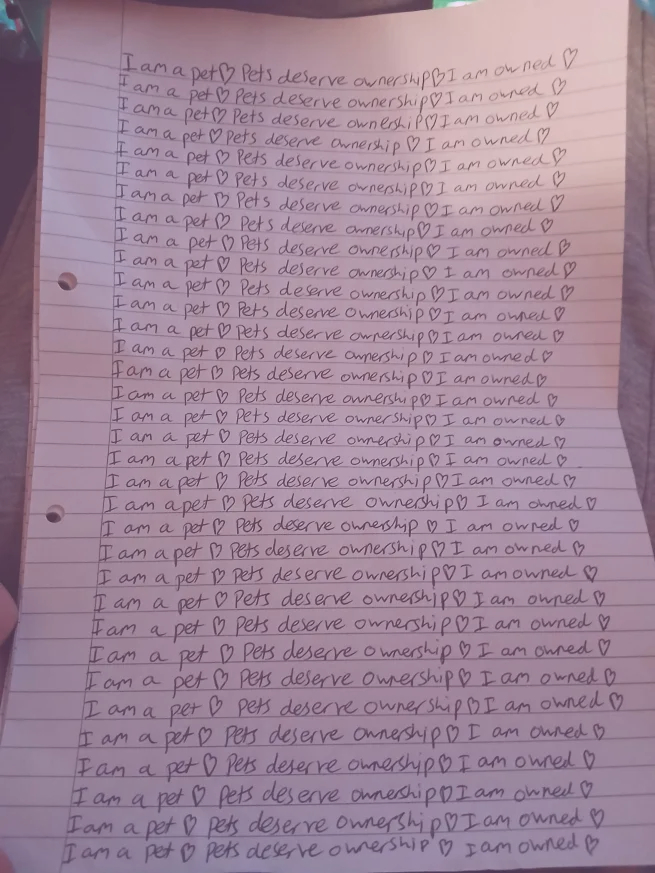 I am a pet♡ Pets deserve ownership♡ I am owned ♡
I am a pet ♡ Pets deserve ownership♡ I am owned ♡
I am a pet♡ Pets deserve ownership♡ I am owned ♡
I am a pet ♡ Pets deserve ownership ♡ I am owned ♡
I am a pet ♡ Pets deserve ownership♡ I am owned ♡
I am a pet ♡ Pets deserve ownership♡ I am owned ♡
I am a pet ♡ Pets deserve ownership♡ I am owned ♡
I am a pet ♡ Pets deserve ownership♡ I am owned ♡
I am a pet ♡ Pets deserve ownership♡ I am owned ♡
I am a pet ♡ Pets deserve ownership♡ I am owned ♡
I am a pet ♡ Pets deserve ownership♡ I am owned ♡
I am a pet ♡ Pets deserve ownership♡ I am owned ♡
I am a pet ♡ Pets deserve ownership♡ I am owned ♡
I am a pet ♡ Pets deserve ownership♡ I am owned ♡
I am a pet ♡ Pets deserve ownership♡ I am owned♡
I am a pet ♡ Pets deserve ownership♡ I am owned ♡
I am a pet ♡ Pets deserve ownership♡ I am owned ♡
I am a pet ♡ Pets deserve ownership♡ I am owned ♡
I am a pet ♡ Pets deserve ownership♡ I am owned ♡
I am a pet ♡ Pets deserve ownership♡ I am owned ♡
I am a pet ♡ Pets deserve ownership♡ I am owned ♡
I am a pet ♡ Pets deserve ownership ♡ I am owned ♡
I am a pet ♡ Pets deserve ownership♡ I am owned ♡
I am a pet ♡ Pets deserve ownership♡ I am owned ♡
I am a pet ♡ Pets deserve ownership♡ I am owned ♡
I am a pet ♡ Pets deserve ownership♡ I am owned ♡
I am a pet ♡ Pets deserve ownership♡ I am owned ♡
I am a pet ♡ Pets deserve ownership♡ I am owned ♡
I am a pet ♡ Pets deserve ownership♡ I am owned ♡
I am a pet ♡ Pets deserve ownership♡ I am owned ♡
I am a pet ♡ Pets deserve ownership♡ I am owned ♡
I am a pet ♡ Pets deserve ownership♡ I am owned ♡
I am a pet ♡ pets deserve ownership♡ I am owned ♡
I am a pet ♡ Pets deserve ownership ♡ I am owned ♡